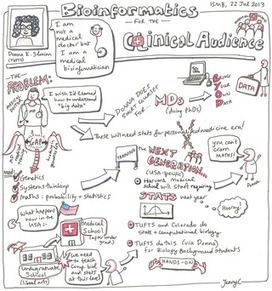 Bioinformatics
FOR THE
Clinical Audience
ISMB, 22 Jul 2013
I am
not a
medical
doctor but
I am a
medical
bioinformatician
THE
PROBLEM:
I wish I'd learned
how to understand
"big data"
MDs
(doing PhDs)
DATA
These will need stats for personalised medicine era!
Genetics
Systems thinking
Maths: probability + statistics
TRAINING
THE
NEXT
GENERATION
(USA-specific)
Harvard medical
school will start requiring
STATS
next year
you can't
learn
maths!
Hooray!
What happens
now in the
USA:-
Medical
School
Undergraduate
School
We need
to teach
comp. bio
and stats
at this level
TUFTS and Colorado do
stats + computational biology
TUFTS do this (via Donna) for
Biology Background Students
HANDS-ON